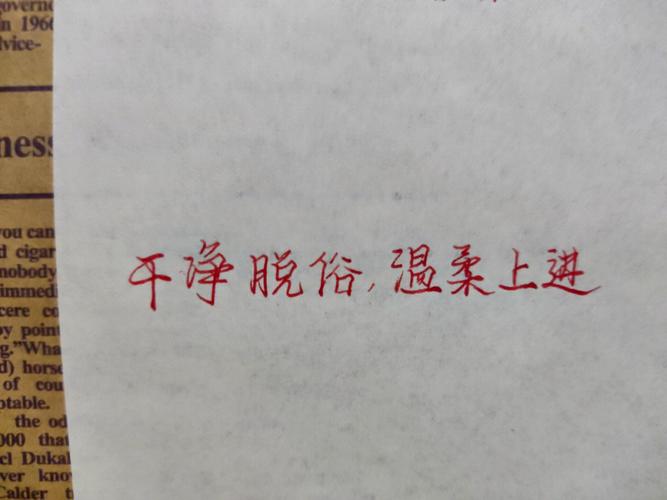 governe
in 1966
dvice-
ness
you can
d cigar
nobody
immedi
cere co
by poin
g."Wha
d) horse
of cou
ptable.
the od
000 that
cl Dukal
ver kno
Calder t
干净脱俗,温柔上进